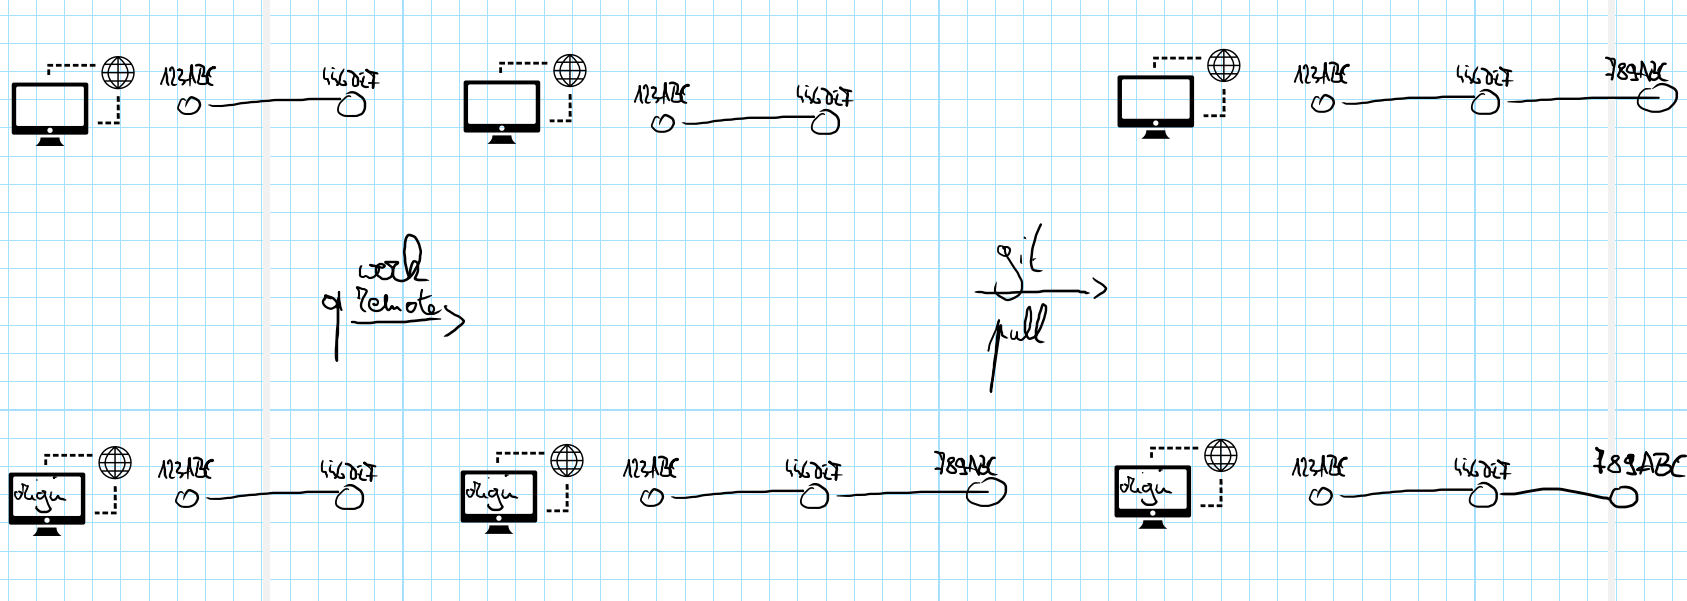 123ABC
456DEF
123ABC
456DEF
123ABC
456DEF
789ABC
work
remote
git
pull
origin
123ABC
456DEF
origin
123ABC
456DEF
789ABC
origin
123ABC
456DEF
789ABC